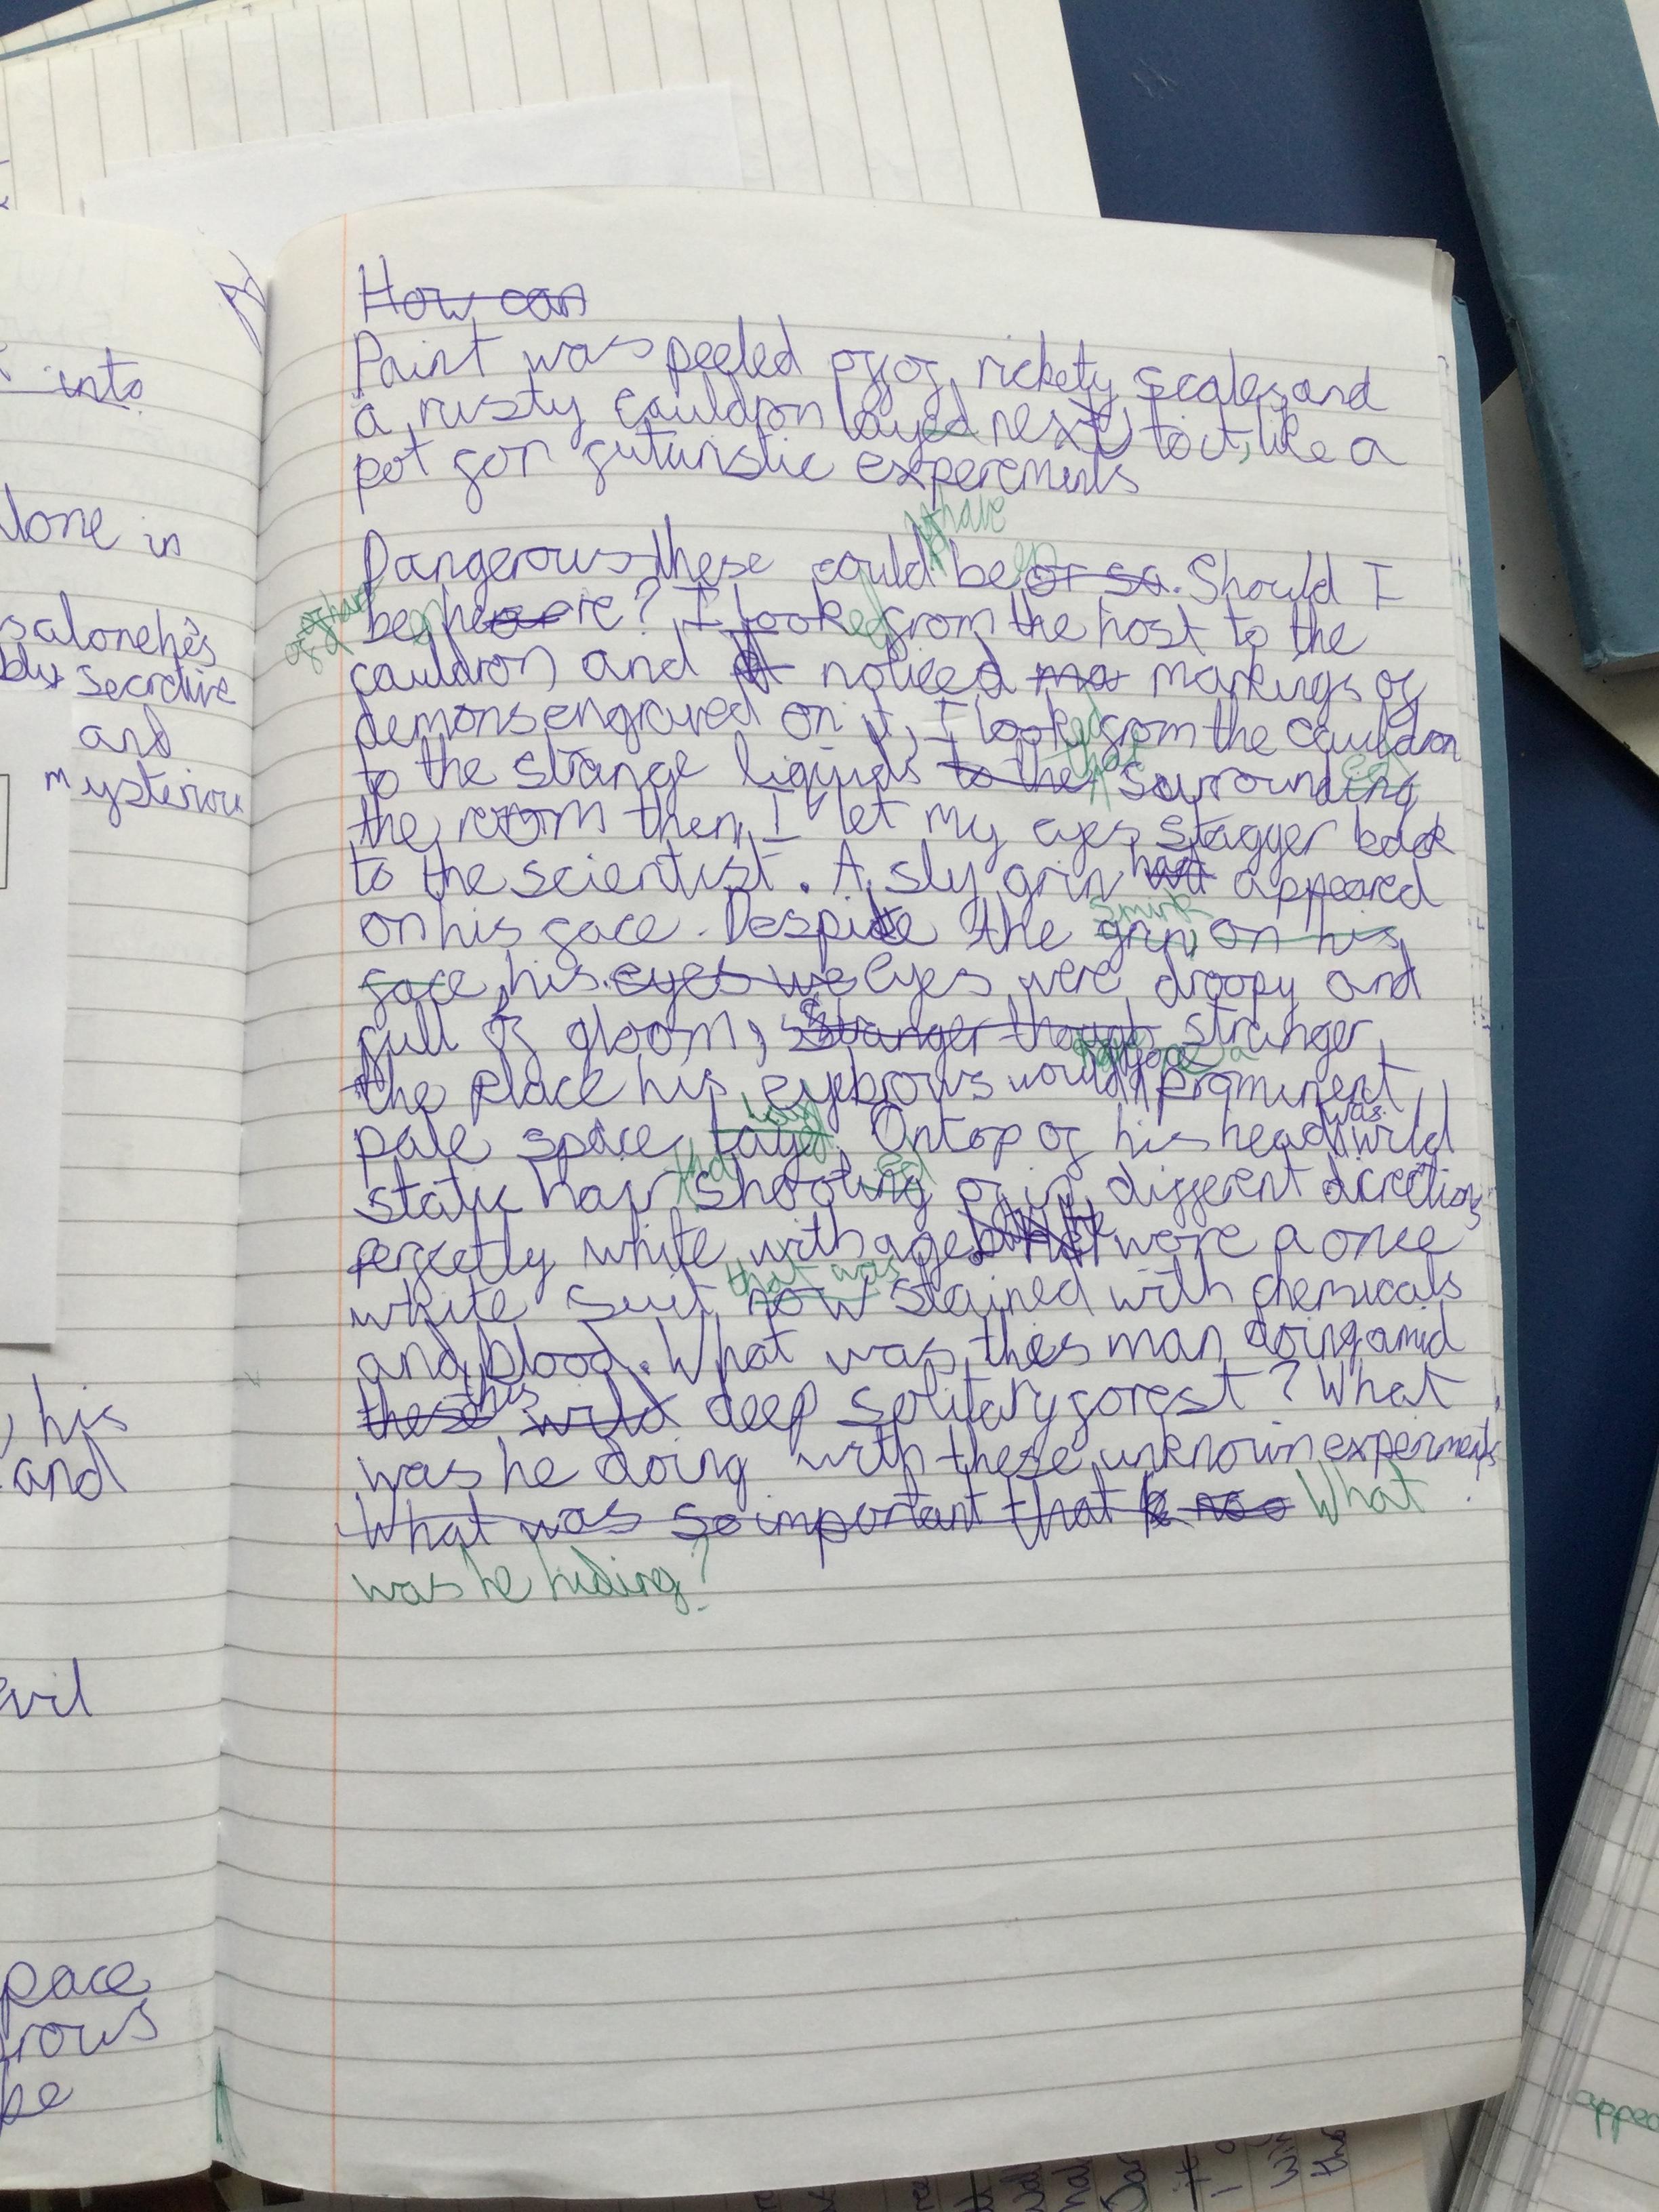 into
lone in
alone he's
Secretive
and
mysteriou
, his
and
evil
pace
rows
be
How can
Paint was peeled of of rickety scales and
a rusty cauldron layed next to it, like a
pot for futuristic experements
have
Dangerous these could be or so. Should I
be here? I looked from the host to the
cauldron and noticed ma markings of
demons engraved on it, I looked from the cauldron
to the strange liquids to the that surrounding
the room then I let my eyes stagger back
to the scientist. A sly grin had appeared
smirk
on his face. Despite the grin on his
face, his eyes we eyes were droopy and
full of gloom, Stranger though stranger
the place his eyebrows would prominent
pale space layed. Ontop of his head was wild
static hair that shooting of in different directions
perfectly white with age. wore a once
that was
white suit now stained with chemicals
and blood. What was this man doing amid
these this wild deep solitary forest? What
was he doing with these unknown experiments
What was so important that What
was he hiding?
appea